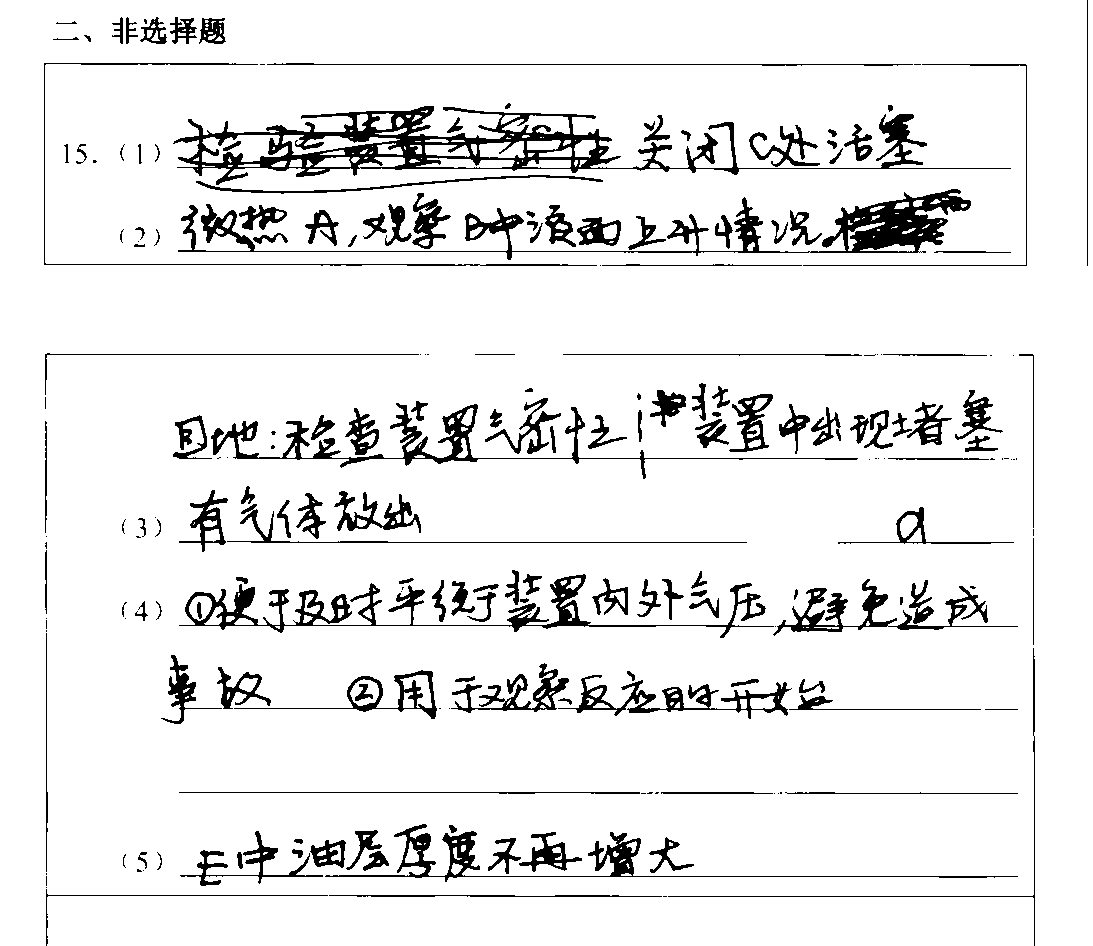 二、非选择题
15.（1）检验装置气密性 关闭C处活塞
（2）微热A,观察B中液面上升情况.
目地:检查装置气密性 装置中出现堵塞
（3）有气体放出 a
（4）①便于及时平衡于装置内外气压,避免造成
事故 ②用于观察反应时开始
（5）E中油层厚度不再增大